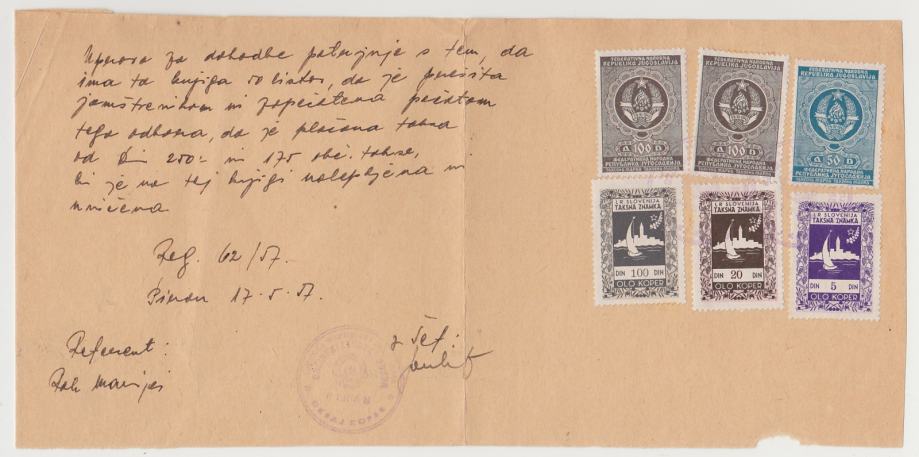 Uprava za dohodke potrjuje s tem, da
ima ta knjiga 50 listov, da je prešita
jamstvenikom in zapečatena pečatom
tega odbora, da je plačana taksa
od Din 250.- in 175 obč. takse,
ki je na tej knjigi nalepljena in
uničena
Reg. 62/57.
Piran 17.5.57.
Referent:
Šef:
FEDERATIVNA NARODNA
REPUBLIKA JUGOSLAVIJA
Д 100 D
ФЕДЕРАТИВНА НАРОДНА
РЕПУБЛИКА ЈУГОСЛАВИЈА
FEDERATIVNA NARODNA
REPUBLIKA JUGOSLAVIJA
Д 100 D
ФЕДЕРАТИВНА НАРОДНА
РЕПУБЛИКА ЈУГОСЛАВИЈА
FEDERATIVNA NARODNA
REPUBLIKA JUGOSLAVIJA
Д 50 D
ФЕДЕРАТИВНА НАРОДНА
РЕПУБЛИКА ЈУГОСЛАВИЈА
LR SLOVENIJA
TAKSNA ZNAMKA
DIN 100 DIN
OLO KOPER
LR SLOVENIJA
TAKSNA ZNAMKA
DIN 20 DIN
OLO KOPER
LR SLOVENIJA
TAKSNA ZNAMKA
DIN 5 DIN
OLO KOPER
OKRAJ KOPER